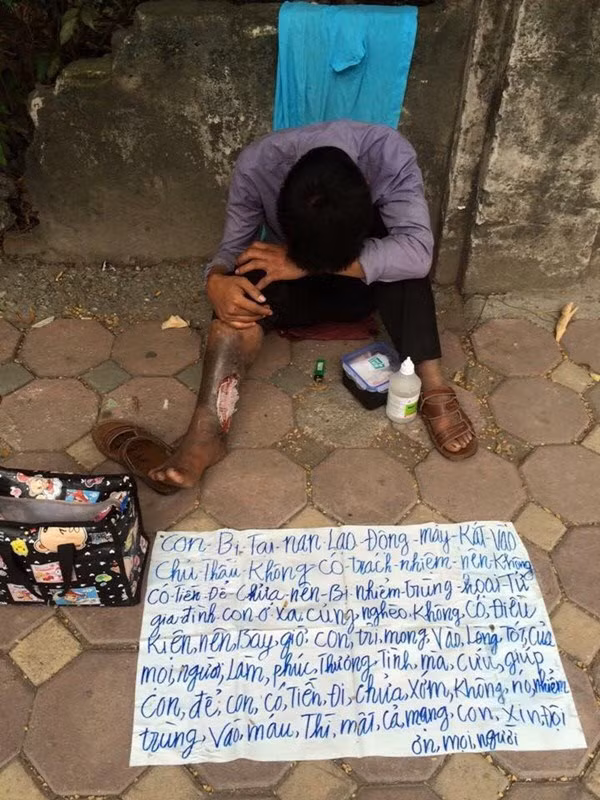 Con Bị Tai nạn Lao Động máy Kắt Vào
Chủ Thầu Không Có trách nhiệm nên Không
Có Tiền Để Chữa nên Bị nhiễm trùng hoại Tử
gia đình con ở xa cũng nghèo Không Có Điều
Kiện, nên, Bây giờ con, trỉ, mong, Vào, Lòng Tốt, Của
mọi, người, Làm, phúc, Thương, Tình, mà, Cứu, giúp,
Con, để, con, Có, Tiền, Đi, chữa, Xớm, Không, nó, nhiễm
trùng, Vào, máu, Thì, mất, cả, mạng, Con, Xin, Đội
ơn, mọi, người